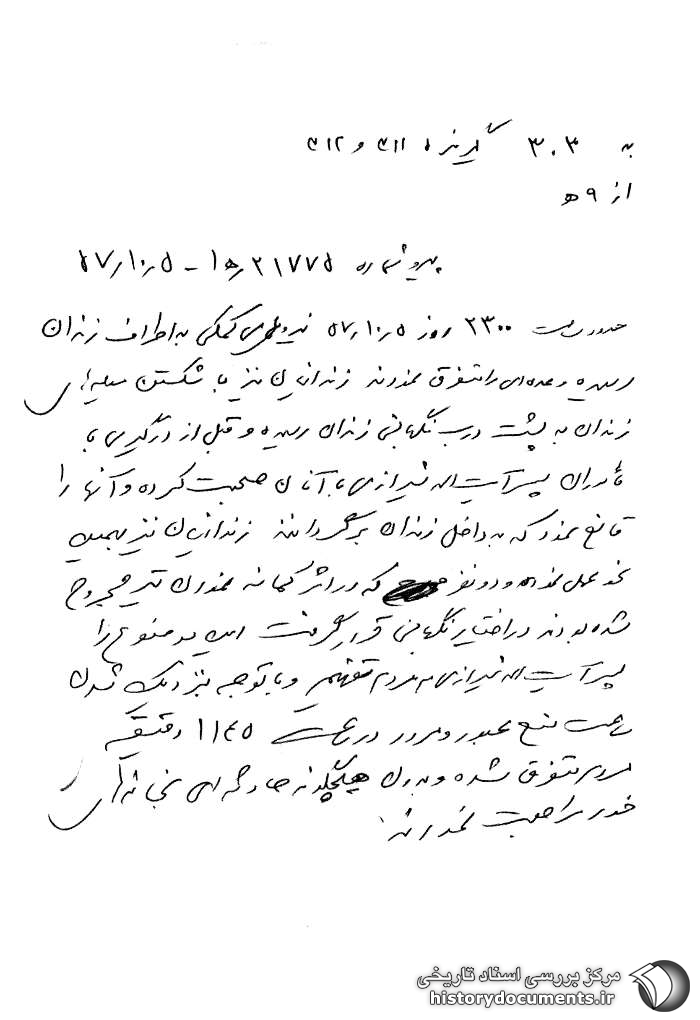 به ۳۰۳ گیرنده ۳۱۱ و ۳۱۲
از ۹ ه
پیرو شماره ۲۱۷۷۵ / ۹ه۱ - ۵۷/۱۰/۵
حدود ساعت ۲۳۰۰ روز ۵۷/۱۰/۵ نیروهای کمکی به اطراف زندان
رسیده و عده‌ای را متفرق نمودند زندانیان نیز با شکستن میله‌های
زندان به پشت درب نگهبانی زندان رسیده و قبل از درگیری با
مأموران پسر آیت‌اله شیرازی با آنان صحبت کرده و آنها را
قانع نمود که به داخل زندان برگردانند زندانیان نیز بهمین
نحو عمل نموده و دو نفر که در اثر کمانه نمودن تیر مجروح
شده بودند در اختیار نگهبانی قرار گرفت این موضوع را
پسر آیت‌اله شیرازی به مردم تفهیم و با توجه بنزدیک شدن
ساعت منع عبور و مرور در ساعت ۱۱٤۵ دقیقه
مردم متفرق شده و بدون هیچگونه حادثه‌ای بخانه‌های
خود مراجعت نمودند.
مرکز بررسی اسناد تاریخی
historydocuments.ir